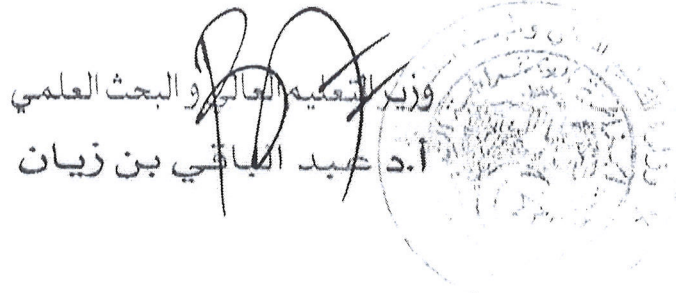 وزير التعليم العالي و البحث العلمي
أ.د عبد الباقي بن زيان